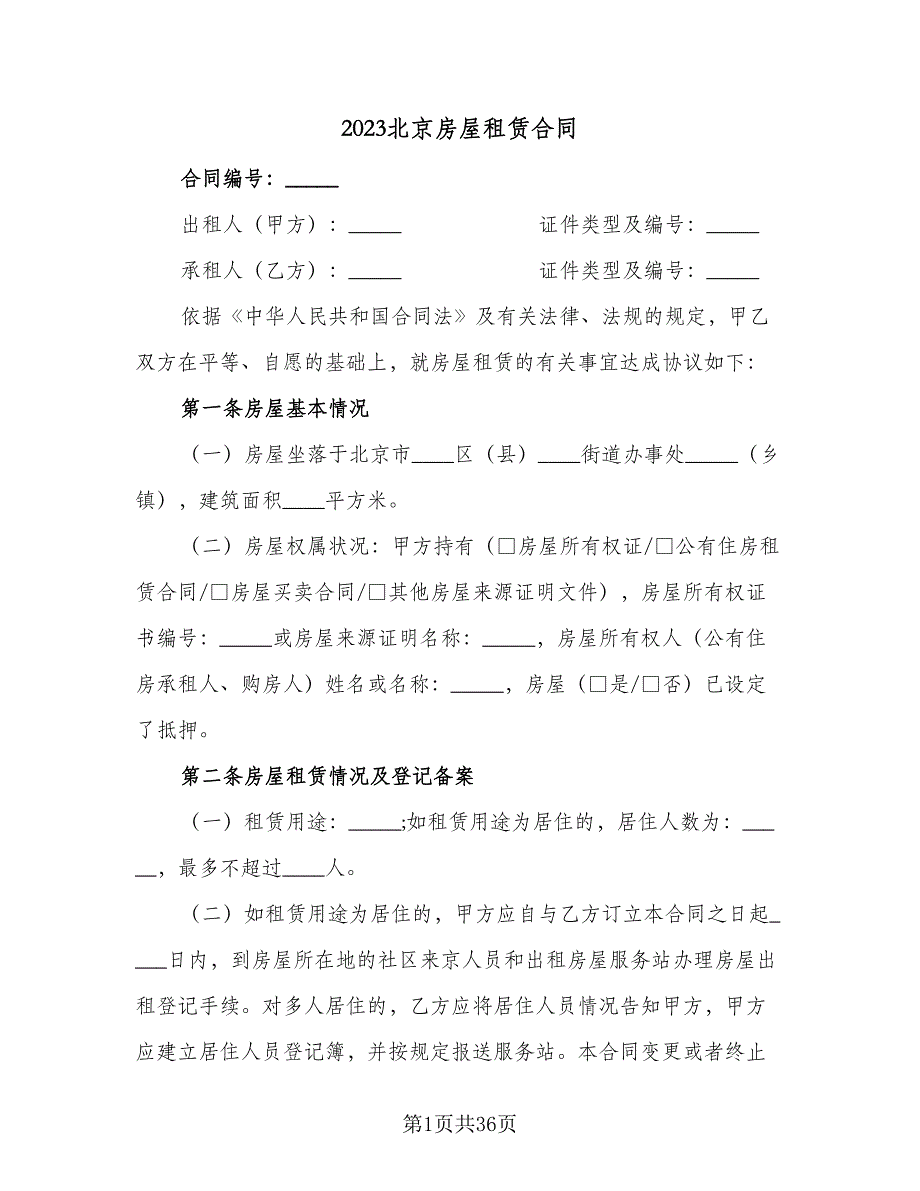 2023北京房屋租赁合同
合同编号：_____
出租人（甲方）：_____ 证件类型及编号：_____
承租人（乙方）：_____ 证件类型及编号：_____
依据《中华人民共和国合同法》及有关法律、法规的规定，甲乙
双方在平等、自愿的基础上，就房屋租赁的有关事宜达成协议如下：
第一条房屋基本情况
（一）房屋坐落于北京市____区（县）____街道办事处_____（乡
镇），建筑面积____平方米。
（二）房屋权属状况：甲方持有（□房屋所有权证/□公有住房租
赁合同/□房屋买卖合同/□其他房屋来源证明文件），房屋所有权证
书编号：_____或房屋来源证明名称：_____，房屋所有权人（公有住
房承租人、购房人）姓名或名称：_____，房屋（□是/□否）已设定
了抵押。
第二条房屋租赁情况及登记备案
（一）租赁用途：_____;如租赁用途为居住的，居住人数为：___
__，最多不超过____人。
（二）如租赁用途为居住的，甲方应自与乙方订立本合同之日起_
___日内，到房屋所在地的社区来京人员和出租房屋服务站办理房屋出
租登记手续。对多人居住的，乙方应将居住人员情况告知甲方，甲方
应建立居住人员登记簿，并按规定报送服务站。本合同变更或者终止
第1页共36页